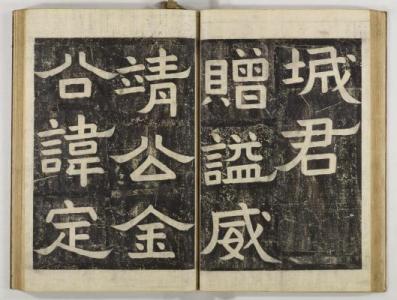 城君
贈謚威
靖公金
公諱定